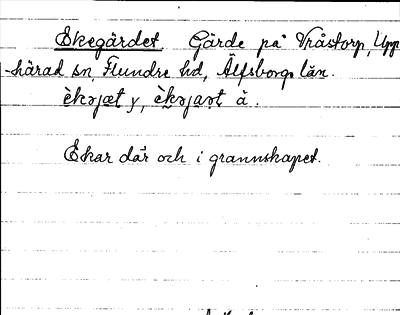 Ekegärdet. Gärde på Vråstorp, Upp
-härad sn, Flundre hd, Älfsborgs län.
è̀kɘjæt y, è̀kɘjaṇt ä.
Ekar där och i grannskapet.